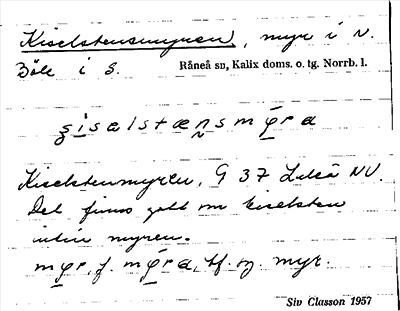 Kiselstensmyren, myr i N.
Böle i S. Råneå sn, Kalix doms. o. tg. Norrb. l.
Kiselstenmyren, G 37 Luleå NV.
Det finns gott om kiselsten
intill myren.
f. bf. sg. myr.
Siv Classon 1957